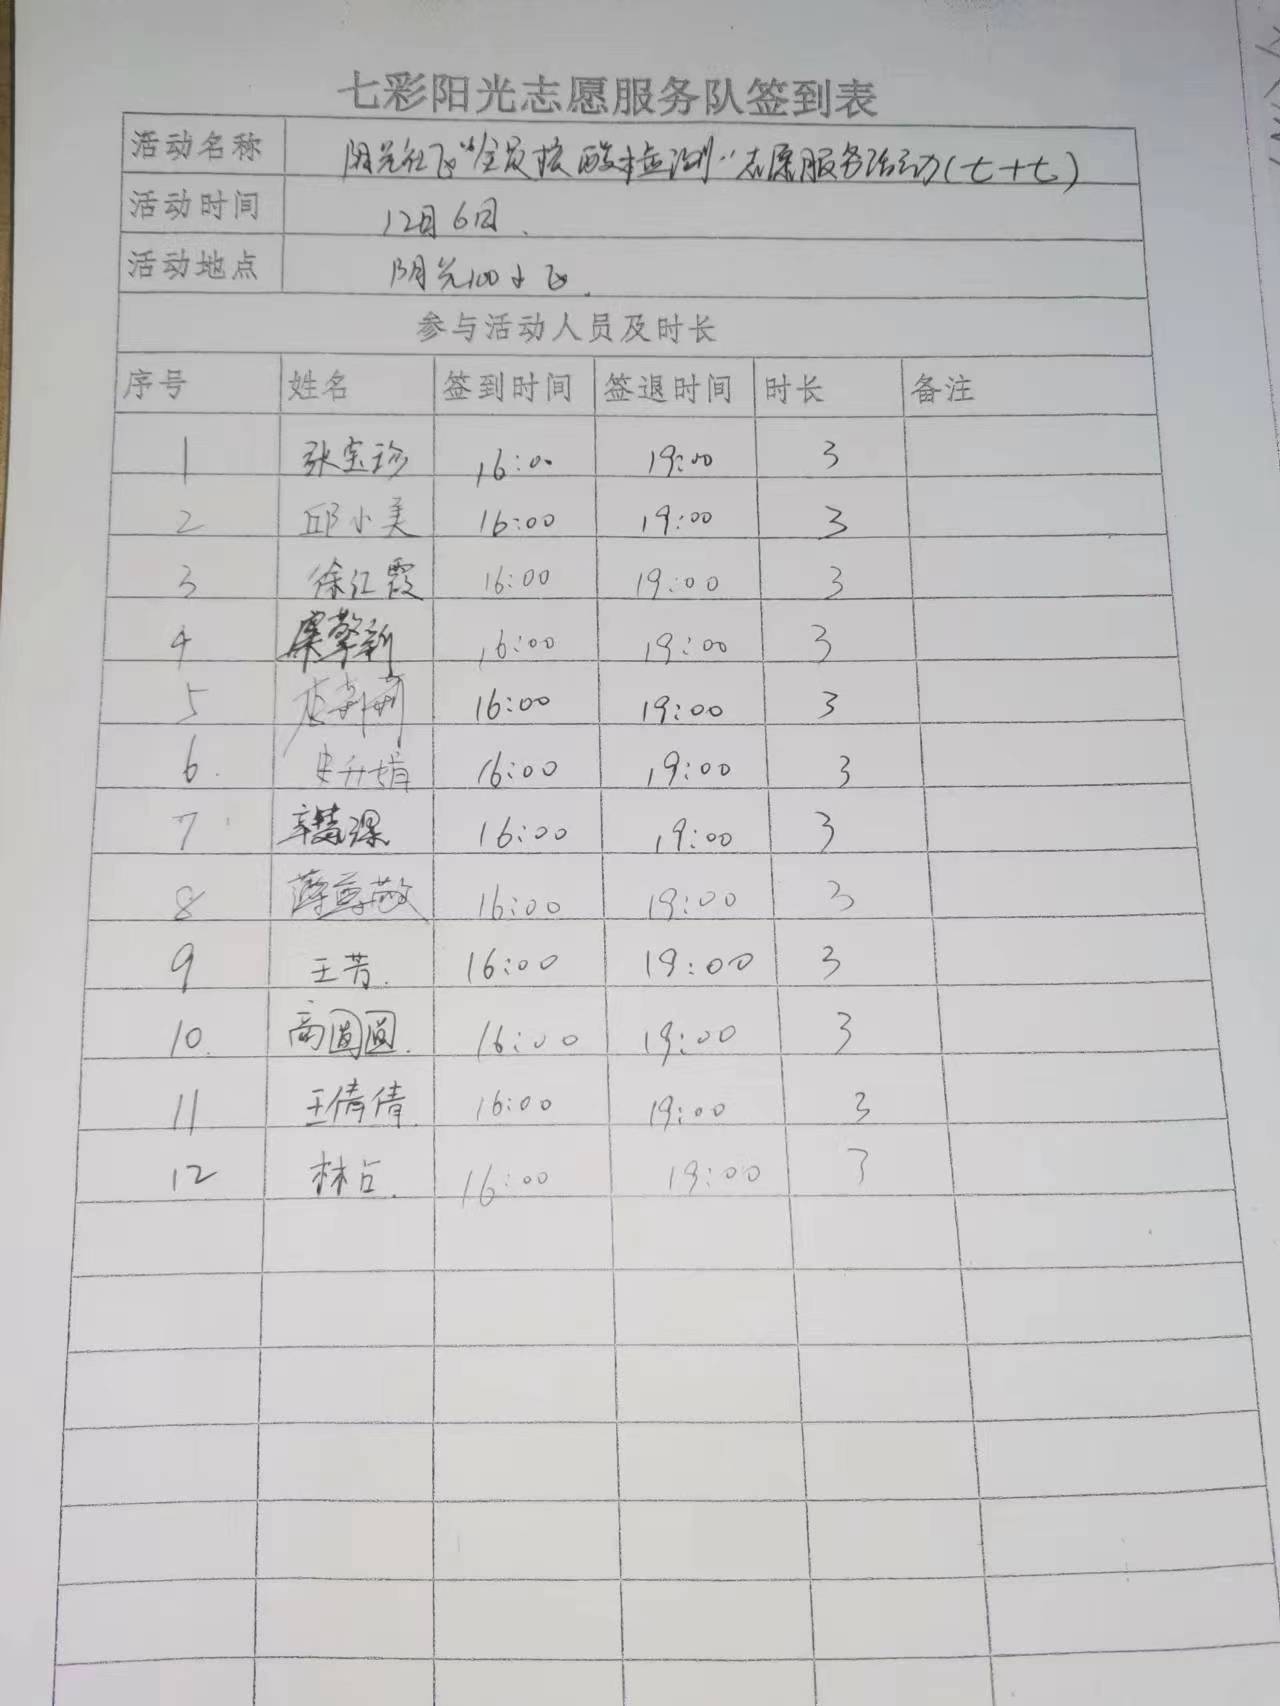 七彩阳光志愿服务队签到表
活动名称 阳光社区“全员核酸检测”志愿服务活动(七十七)
活动时间 12月6日.
活动地点 阳光100小区.
参与活动人员及时长
序号 姓名 签到时间 签退时间 时长 备注
1 张宝珍 16:00 19:00 3
2 邱小美 16:00 19:00 3
3 徐江霞 16:00 19:00 3
4 16:00 19:00 3
5 16:00 19:00 3
6. 16:00 19:00 3
7 16:00 19:00 3
8 16:00 19:00 3
9 王芳. 16:00 19:00 3
10. 高圆圆. 16:00 19:00 3
11 王倩倩. 16:00 19:00 3
12 林占. 16:00 19:00 3